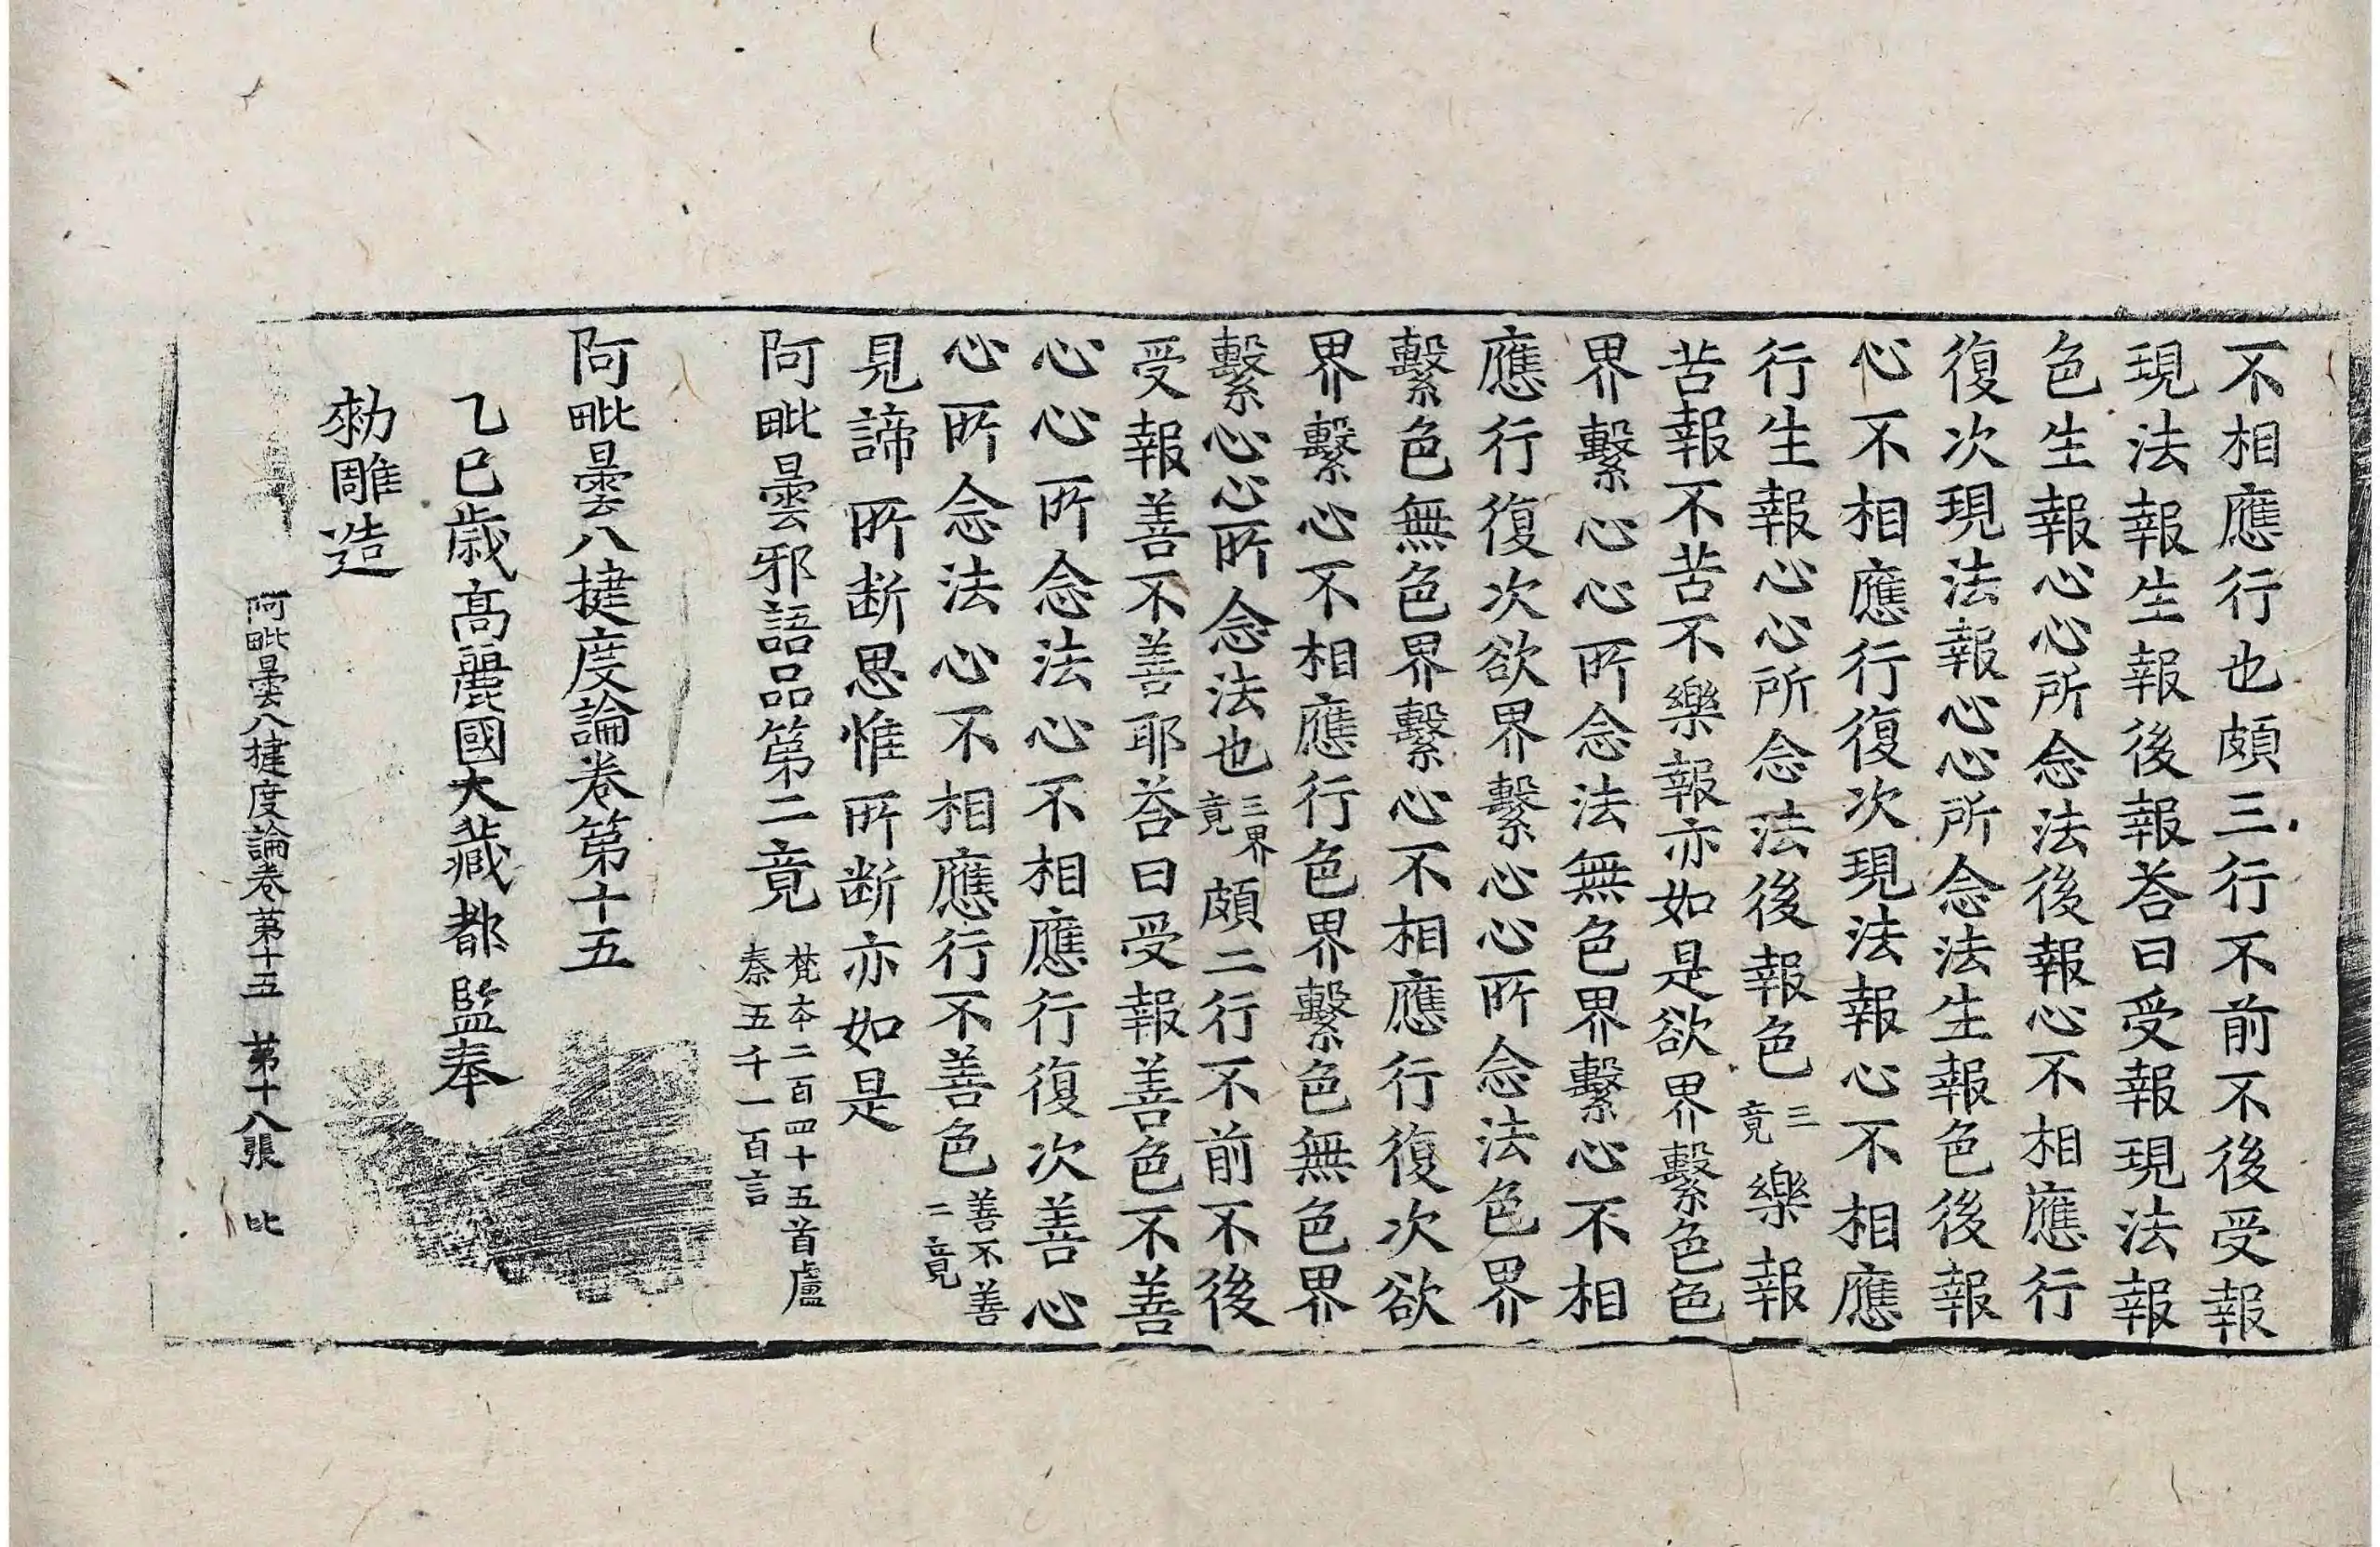 不相應行也頗三行不前不後受報
現法報生報後報荅曰受報現法報
色生報心心所念法後報心不相應行
復次現法報心心所念法生報色後報
心不相應行復次現法報心不相應
行生報心心所念法後報色三竟樂報
苦報不苦不樂報亦如是欲界繫色色
界繫心心所念法無色界繫心不相
應行復次欲界繫心心所念法色界
繫色無色界繫心不相應行復次欲
界繫心不相應行色界繫色無色界
繫心心所念法也三界竟頗二行不前不後
受報善不善耶荅曰受報善色不善
心心所念法心不相應行復次善心
心所念法心不相應行不善色善不善二竟
見諦所断思惟所断亦如是
阿毗曇邪語品第二竟梵本二百四十五首盧秦五千一百言
阿毗曇八揵度論卷第十五
乙巳歳高麗國大藏都監奉
勑雕造
阿毗曇八揵度論卷第十五 第十八張 比